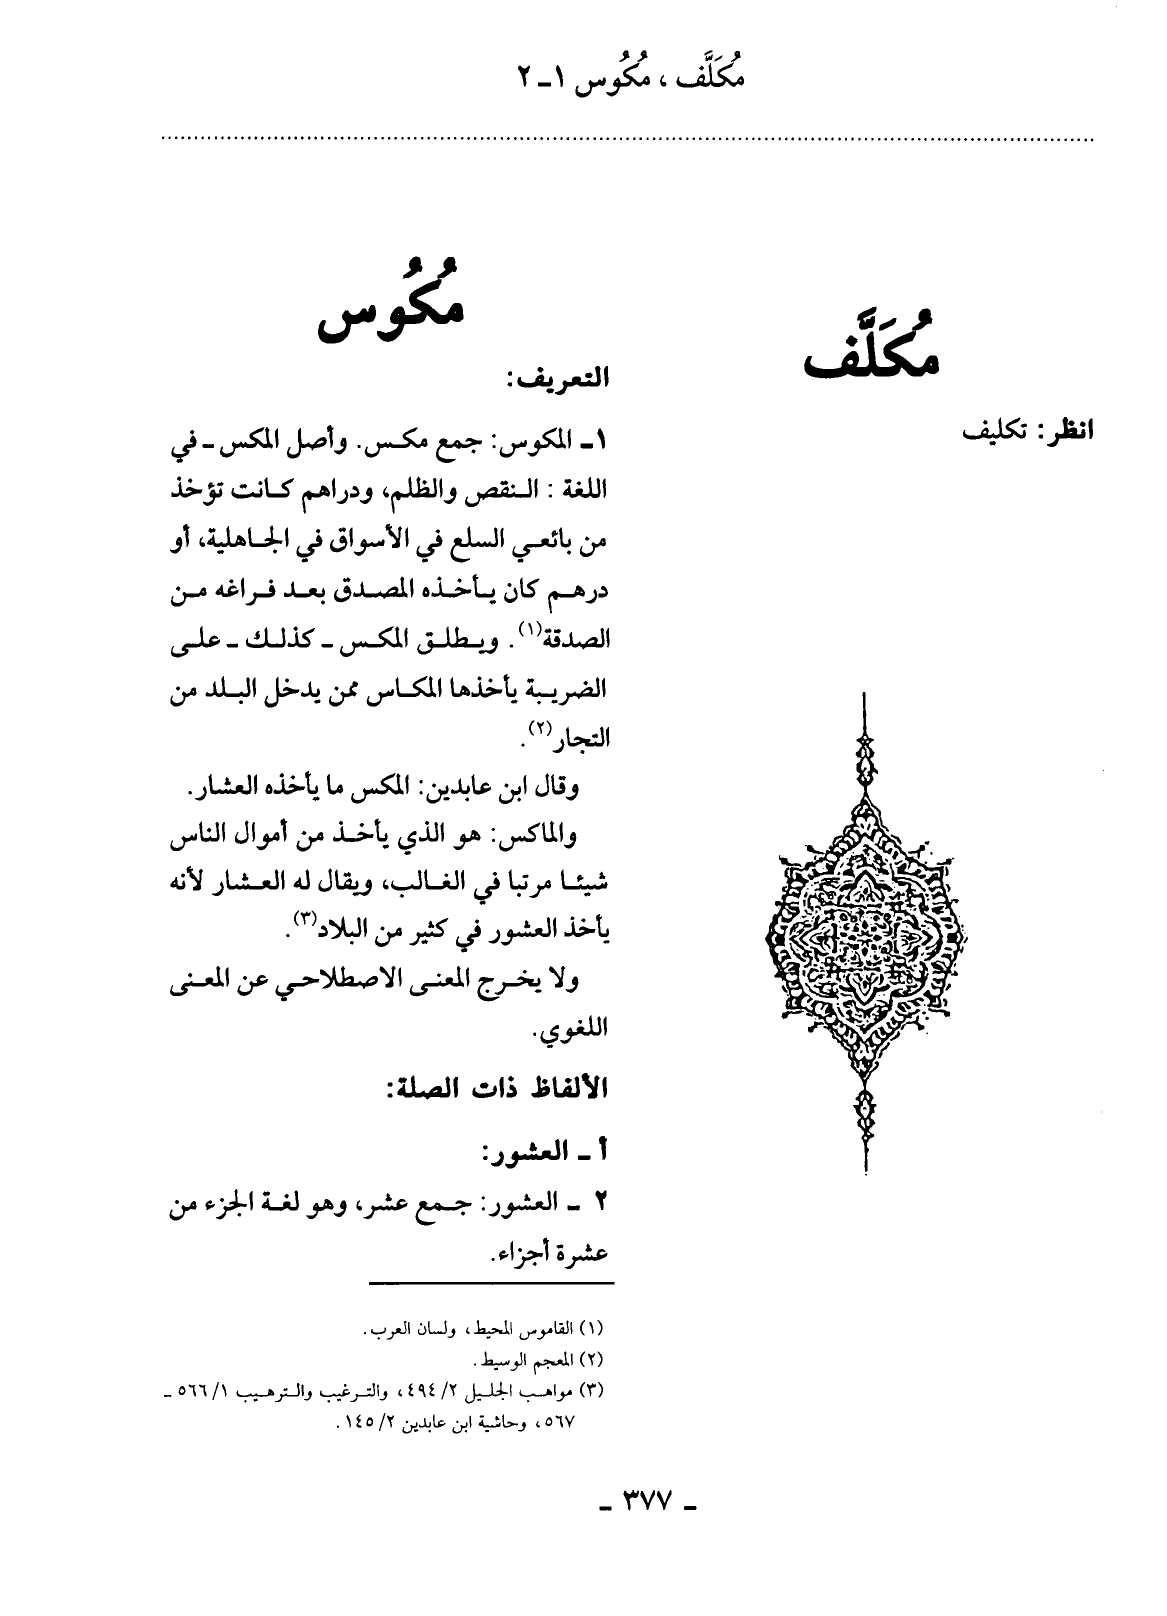 مُكَلَّف ، مُكُوس ١ـ ٢
مُكَلَّف
انظر: تكليف
مُكُوس
التعريف:
١ـ المكوس: جمع مكس. وأصل المكس ـ في
اللغة : النقص والظلم، ودراهم كانت تؤخذ
من بائعي السلع في الأسواق في الجاهلية، أو
درهم كان يأخذه المصدق بعد فراغه من
الصدقة(١). ويطلق المكس ـ كذلك ـ على
الضريبة يأخذها المكاس ممن يدخل البلد من
التجار(٢).
وقال ابن عابدين: المكس ما يأخذه العشار.
والماكس: هو الذي يأخذ من أموال الناس
شيئا مرتبا في الغالب، ويقال له العشار لأنه
يأخذ العشور في كثير من البلاد(٣).
ولا يخرج المعنى الاصطلاحي عن المعنى
اللغوي.
الألفاظ ذات الصلة:
أ ـ العشور:
٢ ـ العشور: جمع عشر، وهو لغة الجزء من
عشرة أجزاء.
(١) القاموس المحيط، ولسان العرب.
(٢) المعجم الوسيط.
(٣) مواهب الجليل ٢/ ٤٩٤، والترغيب والترهيب ١/ ٥٦٦ ـ
٥٦٧، وحاشية ابن عابدين ٢/ ١٤٥.
ـ ٣٧٧ ـ